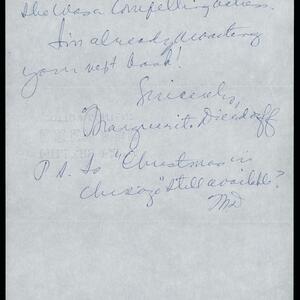 She was a compelling actress.
I'm already awaiting
your next book!
Sincerely,
Marguerite Diendorff
P.S. Is "Christmas in
Chicago" still available?
MD